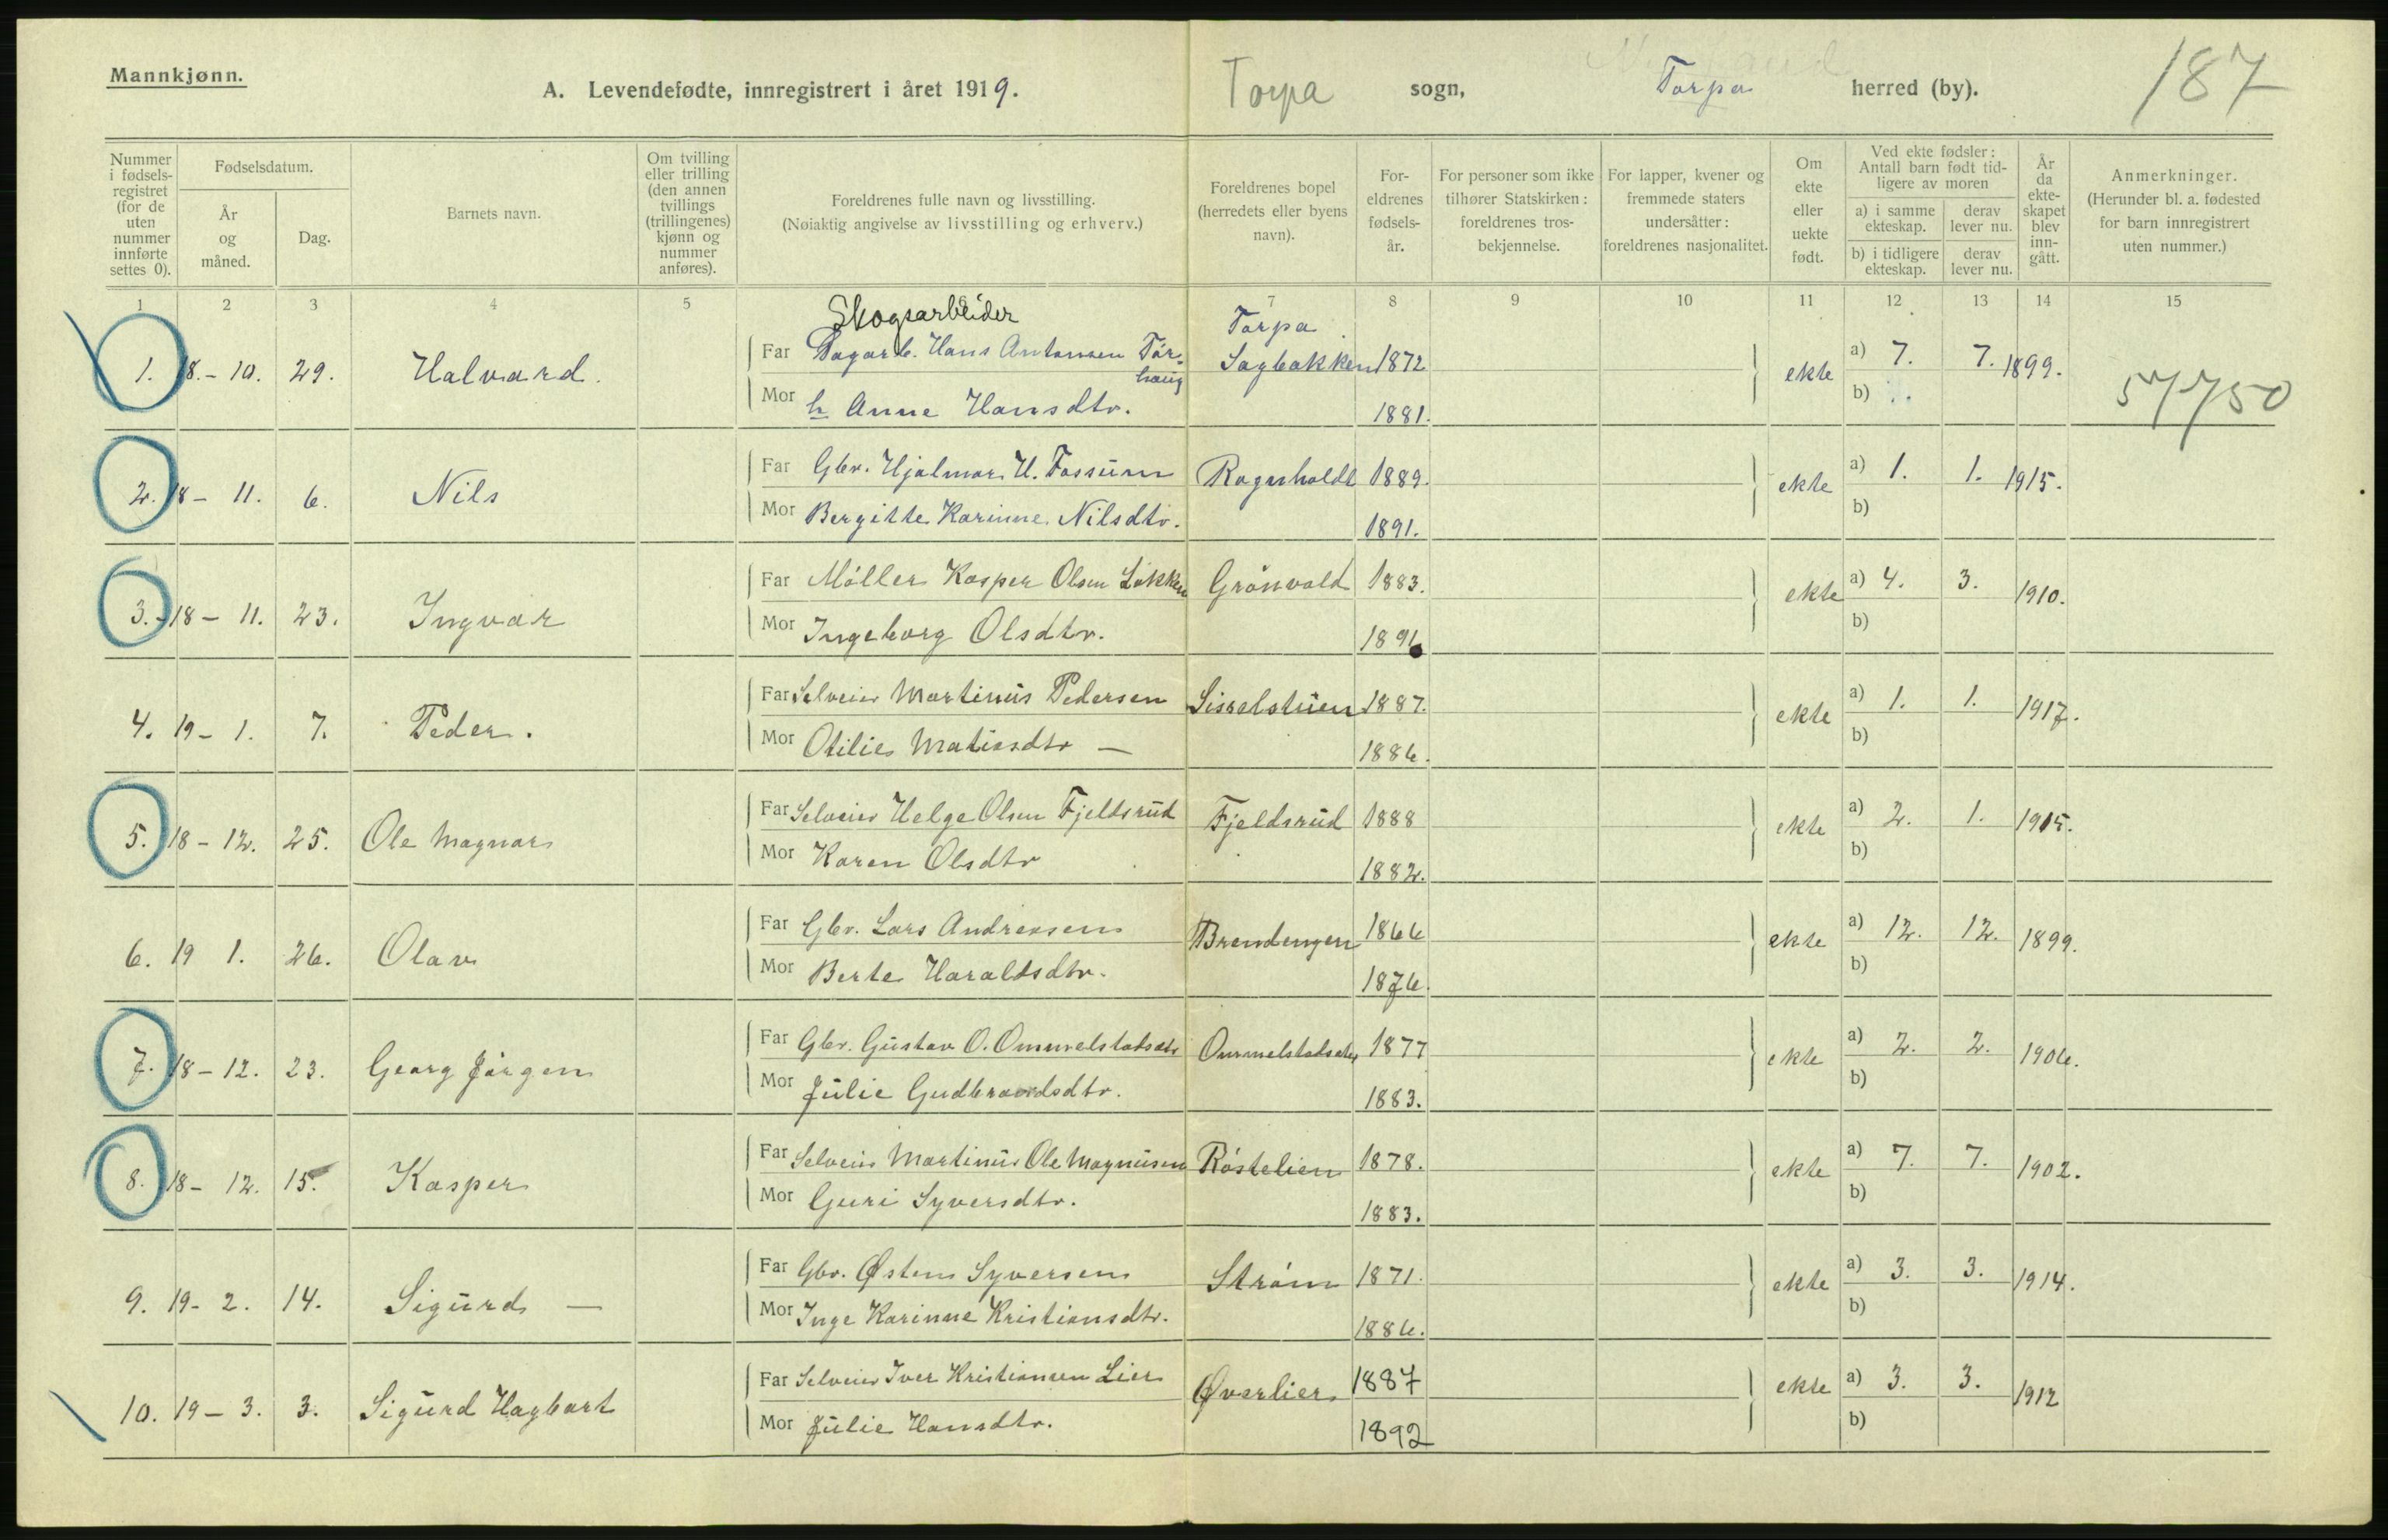 Mannkjønn.
A. Levendefødte, innregistrert i året 1919.
Torpa sogn, Torpa herred (by).
187
Nummer i fødsels-registret (for de uten nummer innførte settes 0).
Fødselsdatum.
År og måned.
Dag.
Barnets navn.
Om tvilling eller trilling (den annen tvillings (trillingenes) kjønn og nummer anføres).
Foreldrenes fulle navn og livsstilling.
(Nøiaktig angivelse av livsstilling og erhverv.)
Foreldrenes bopel (herredets eller byens navn).
For-eldrenes fødsels-år.
For personer som ikke tilhører Statskirken: foreldrenes tros-bekjennelse.
For lapper, kvener og fremmede staters undersåtter: foreldrenes nasjonalitet.
Om ekte eller uekte født.
Ved ekte fødsler: Antall barn født tid-ligere av moren
a) i samme ekteskap.
derav lever nu.
b) i tidligere ekteskap.
derav lever nu.
År da ekte-skapet blev inn-gått.
Anmerkninger.
(Herunder bl. a. fødested for barn innregistrert uten nummer.)
1 2 3 4 5 7 8 9 10 11 12 13 14 15
Skogsarbeider Torpa
1. 18.- 10. 29. Halvard. Far Dagarb. Hans Antonsen Tór- Sagbakken 1872 ekte a) 7. 7. 1899.
haug
Mor h Anne Hansdtr. 1881. b)
57750
2. 18 - 11. 6. Nils Far Gbr. Hjalmar H. Fossum Rognholdt 1889. ekte a) 1. 1. 1915.
Mor Bergitte Karinne Nilsdtr. 1891. b)
3. 18 - 11. 23. Ingvar Far Móller Kasper Olsen Løkken Grónvold 1883. ekte a) 4. 3. 1910.
Mor Ingeborg Olsdtr. 1891 b)
4. 19 - 1. 7. Peder. Far Selveier Martinus Pedersen Sisselstuen 1887. ekte a) 1. 1. 1917.
Mor Otilie Matiasdtr — 1886. b)
5. 18 - 12. 25. Ole Magnar Far Selveier Helge Olsen Fjeldsrud Fjeldsrud 1888 ekte a) 2. 1. 1915.
Mor Karen Olsdtr 1882. b)
6. 19 1. 26. Olav Far Gbr. Lars Andreasen Brendengen 1866 ekte a) 12. 12. 1899.
Mor Berte Haraldsdtr. 1876. b)
7. 18 - 12. 23. Georg Jórgen Far Gbr. Gustav O. Ommelstadsæter Ommelstadsæter 1877 ekte a) 2. 2. 1906.
Mor Julie Gudbrandsdtr. 1883. b)
8. 18 - 12. 15. Kasper Far Selveier Martinus Ole Magnusen Róstelien 1878. ekte a) 7. 7. 1902.
Mor Guri Syversdtr. 1883. b)
9. 19 - 2. 14. Sigurd — Far Gbr. Østen Syversen Stróm 1871. ekte a) 3. 3. 1914.
Mor Inge Karinne Kristiansdtr. 1886. b)
10. 19 - 3. 3. Sigurd Hagbart Far Selveier Iver Kristiansen Lier Øverlier 1887 ekte a) 3. 3. 1912
Mor Julie Hansdtr. 1892 b)